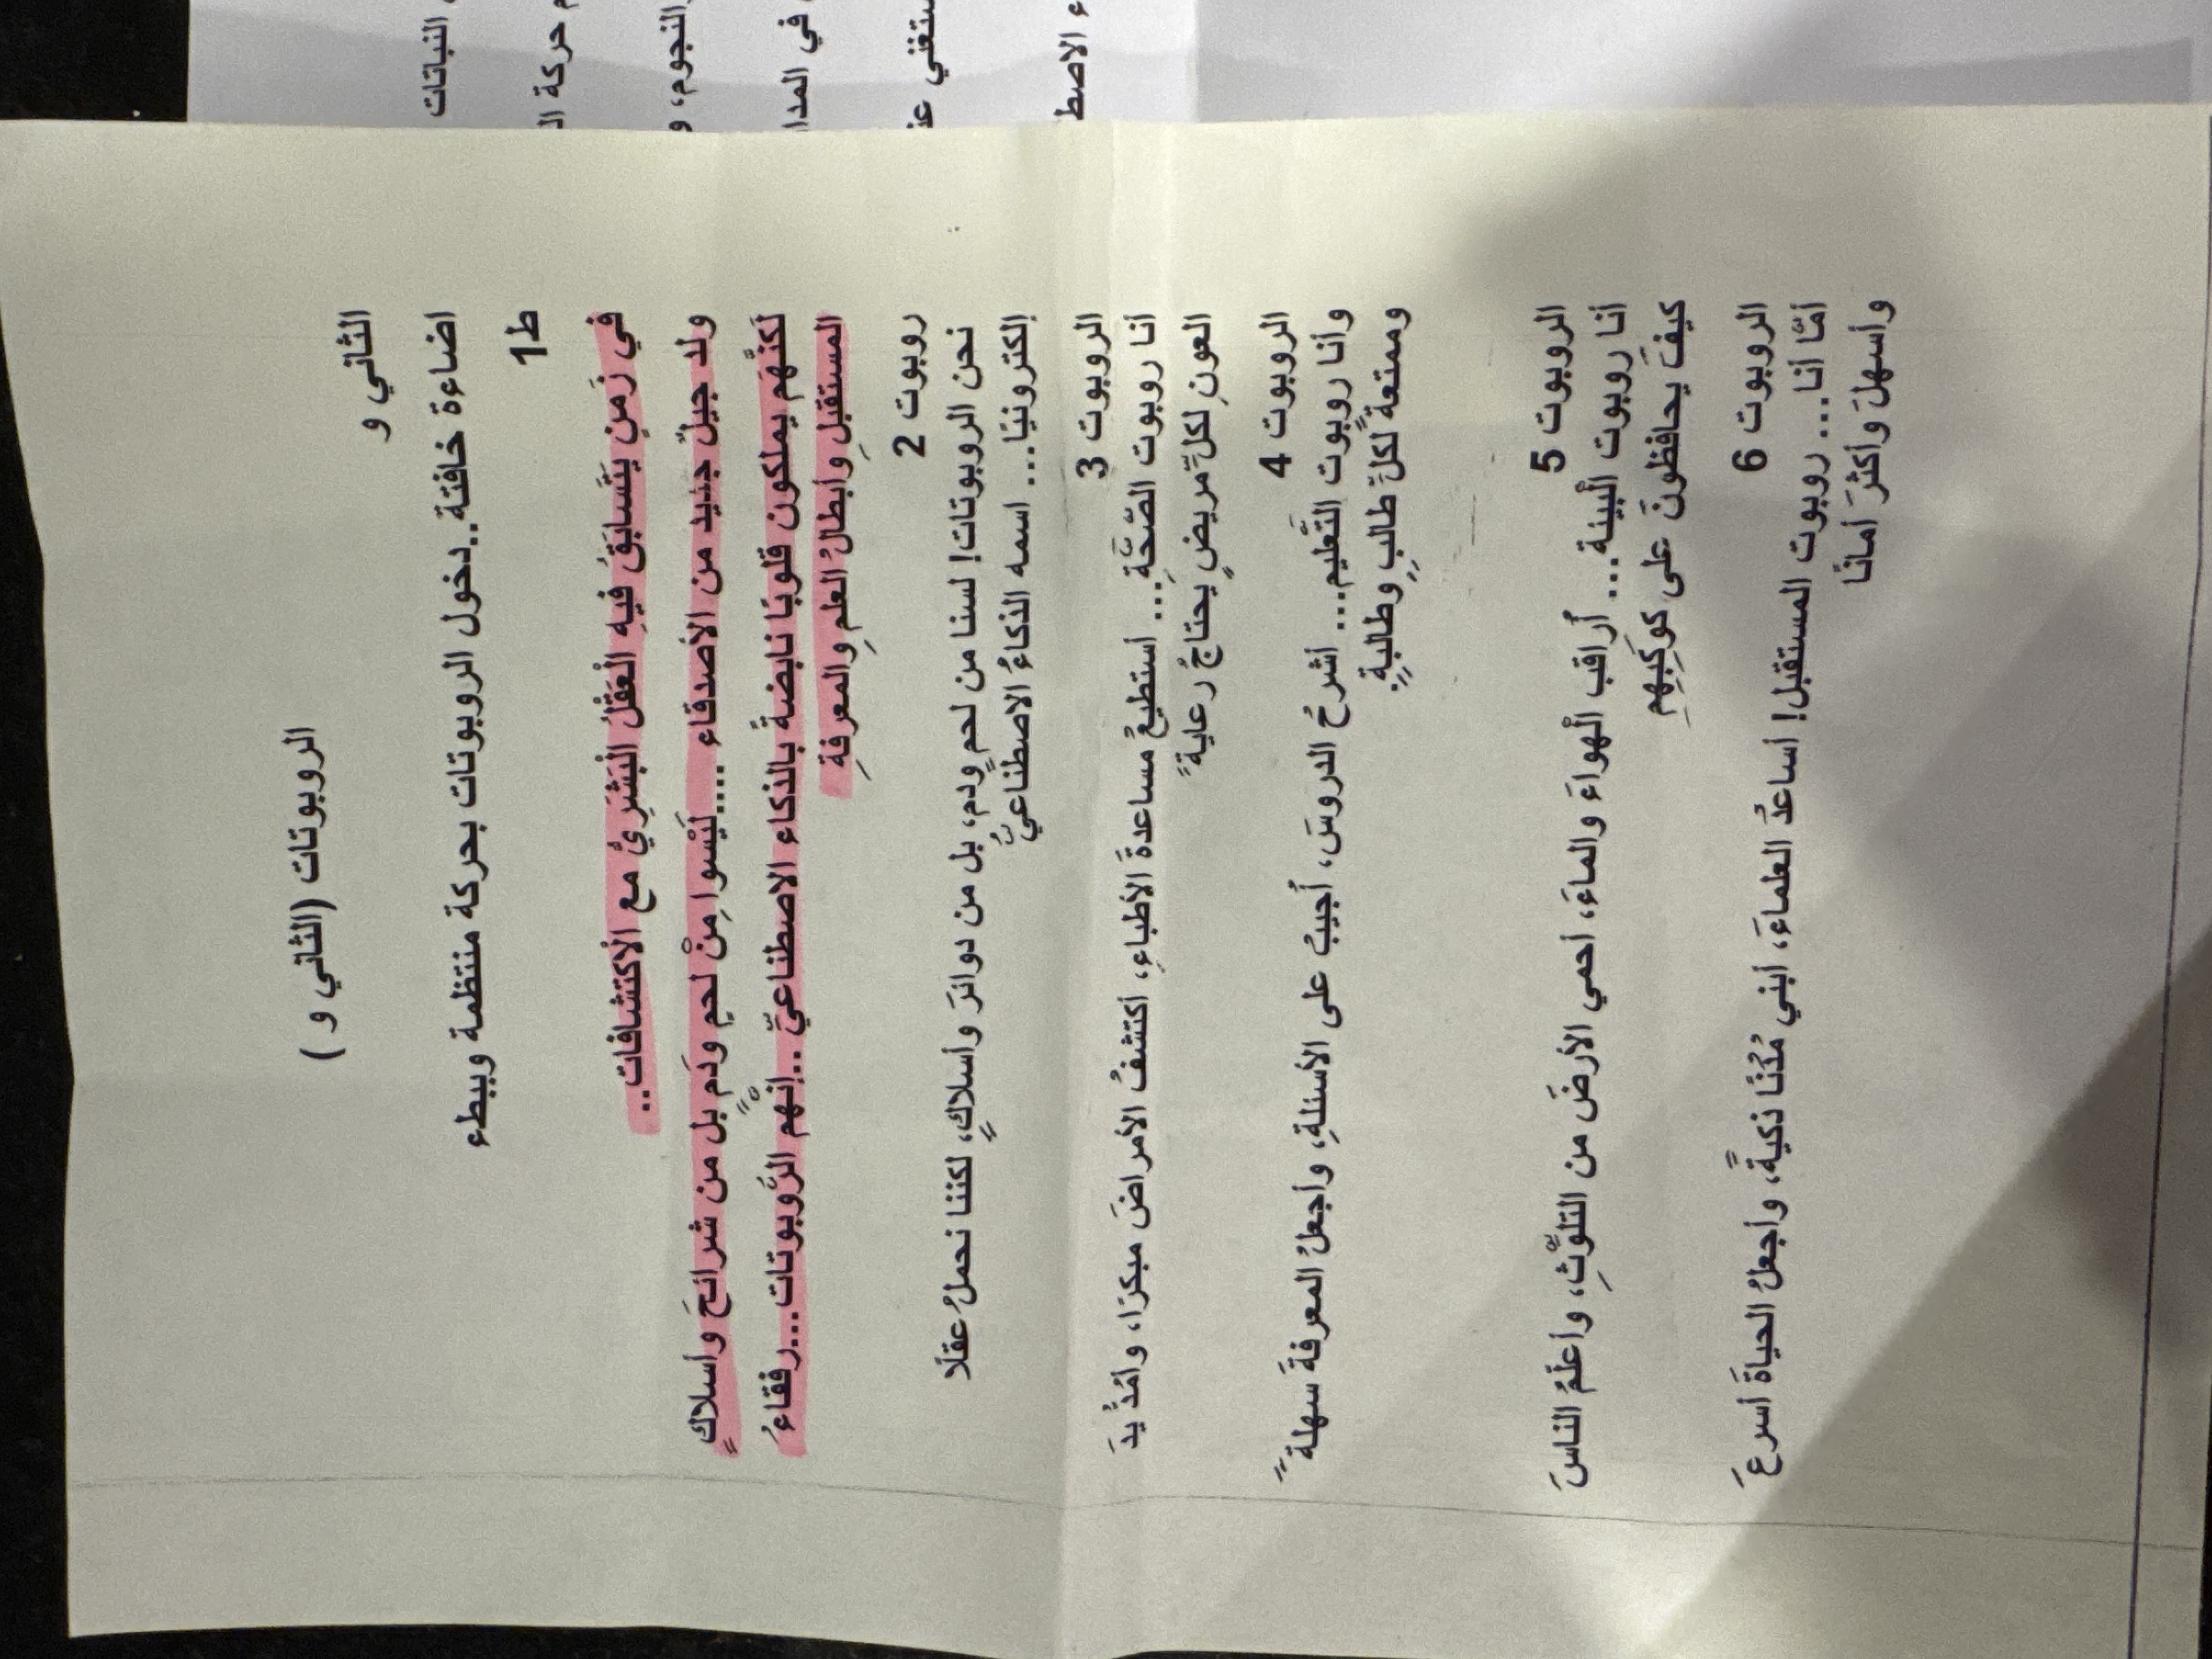 الروبوتات (الثاني و )
الثاني و
اضاءة خافتة..دخول الروبوتات بحركة منتظمة وببطء
ط1
في زَمنٍ يَتَسابَقُ فيهِ الْعَقْلُ الْبَشَرِيُّ مع الْاكتشافات..
ولد جيلٌ جديد من الأصدقاء ....لَيْسوا مِنْ لحمٍ ودَمٍ بل من شرائحَ وأسلاكٍ
لَكنَّهم يملكون قلوبًا نابضةً بالذكاء الاصطناعيِّ ..إنّهم الرُّوبوتات...رفقاءُ
المستقبلِ وأبطالُ العلمِ والمعرفةِ
روبوت 2
نحن الروبوتات! لسنا من لحمٍ ودم، بل من دوائرَ وأسلاكٍ، لكننا نحملُ عقلًا
إلكترونيًا... اسمه الذكاءُ الاصطناعيُّ
الروبوت 3
أنا روبوت الصِّحَّةِ... أستطيعُ مساعدةَ الأطباءِ، أكتشفُ الأمراضَ مبكرًا، وأمُدُّ يدَ
العونِ لكلِّ مريضٍ يحتاجُ رعايةً
الروبوت 4
وأنا روبوت التَّعليم... أشرحُ الدروسَ، أُجيبُ على الأسئلةِ، وأجعلُ المعرفةَ سهلةً
وممتعةً لكلِّ طالبٍ وطالبةٍ
الروبوت 5
أنا روبوت الْبيئة... أُراقب الْهواءَ والماءَ، أحمي الأرضَ من التلوُّثِ، وأعلّمُ الناسَ
كيفَ يحافظونَ على كوكبِهِم
الروبوت 6
أمّا أنا... روبوت المستقبل! أساعدُ العلماءَ، أبني مُدُنًا ذكيةً، وأجعلُ الحياةَ أسرعَ
وأسهلَ وأكثرَ أمانًا
النباتات
حركة
النجوم، و
في
ستغني
ء الاصط